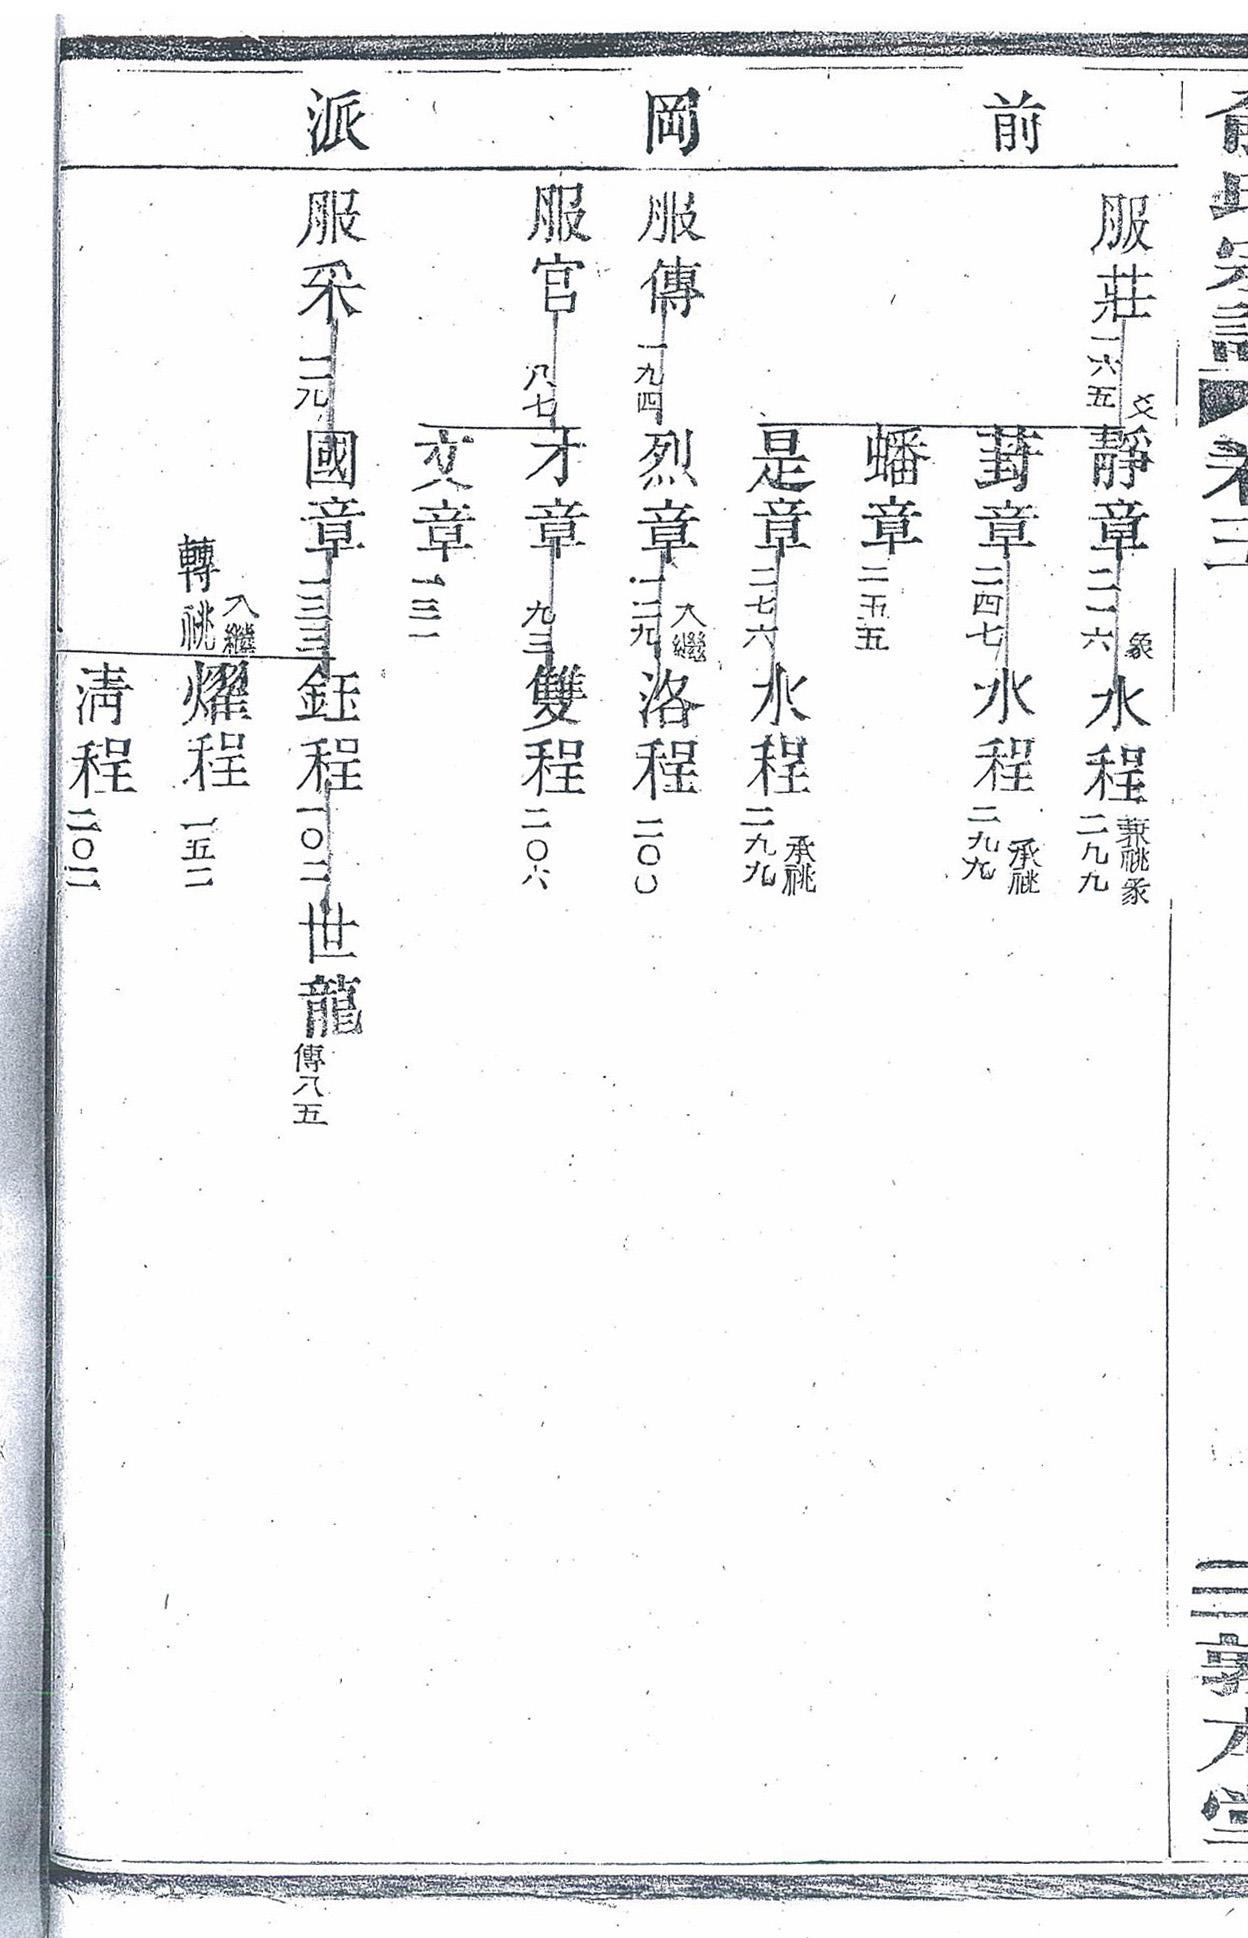 俞氏宗譜 卷三
三 敦本堂
前岡派
服莊 一六五
爻
靜章 二一六
象
水程 二九九 兼祧象
葑章 二四七
水程 二九九 承祧
蟠章 二五五
是章 二七六
水程 二九九 承祧
服傳 一九四
烈章 一二九
入繼
洛程 二〇〇
服官 八七
牙章 九三
雙程 二〇六
文章 一三一
服采 二九
國章 一三三
鈺程 一〇二
世龍 傳八五
轉祧 入繼
燿程 一五二
清程 二〇二